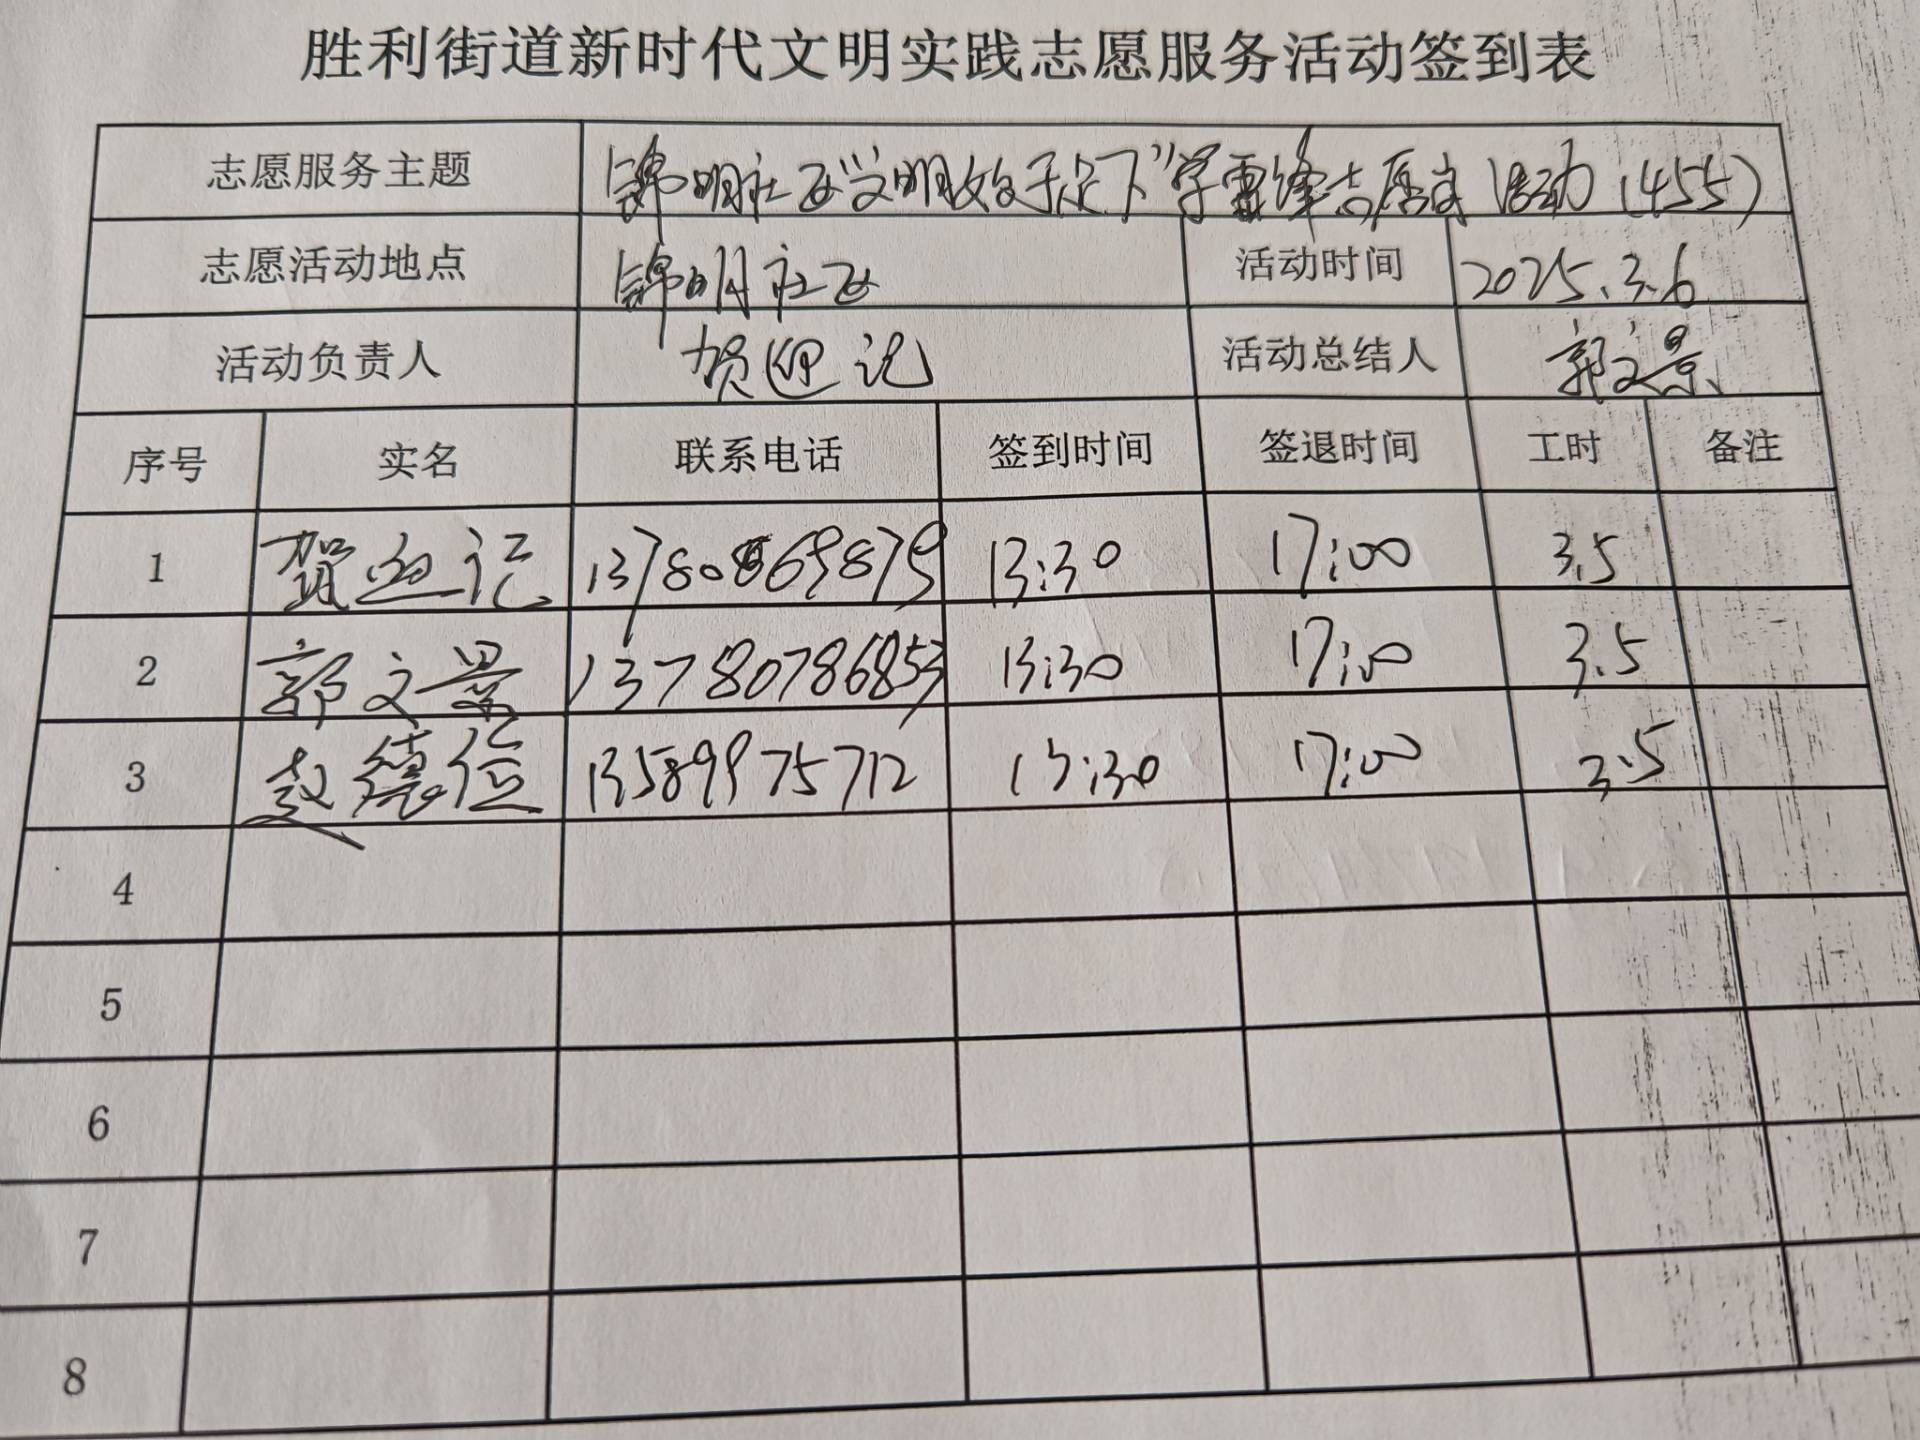 胜利街道新时代文明实践志愿服务活动签到表
志愿服务主题 锦明社区"文明始于足下"学雷锋志愿者活动(455)
志愿活动地点 锦明社区 活动时间 2025.3.6
活动负责人 贺迎记 活动总结人 郭文景
序号 实名 联系电话 签到时间 签退时间 工时 备注
1 贺迎记 13:30 17:00 3.5
2 郭文景 13780786853 13:30 17:00 3.5
3 赵德位 13589975712 13:30 17:00 3.5
4
5
6
7
8